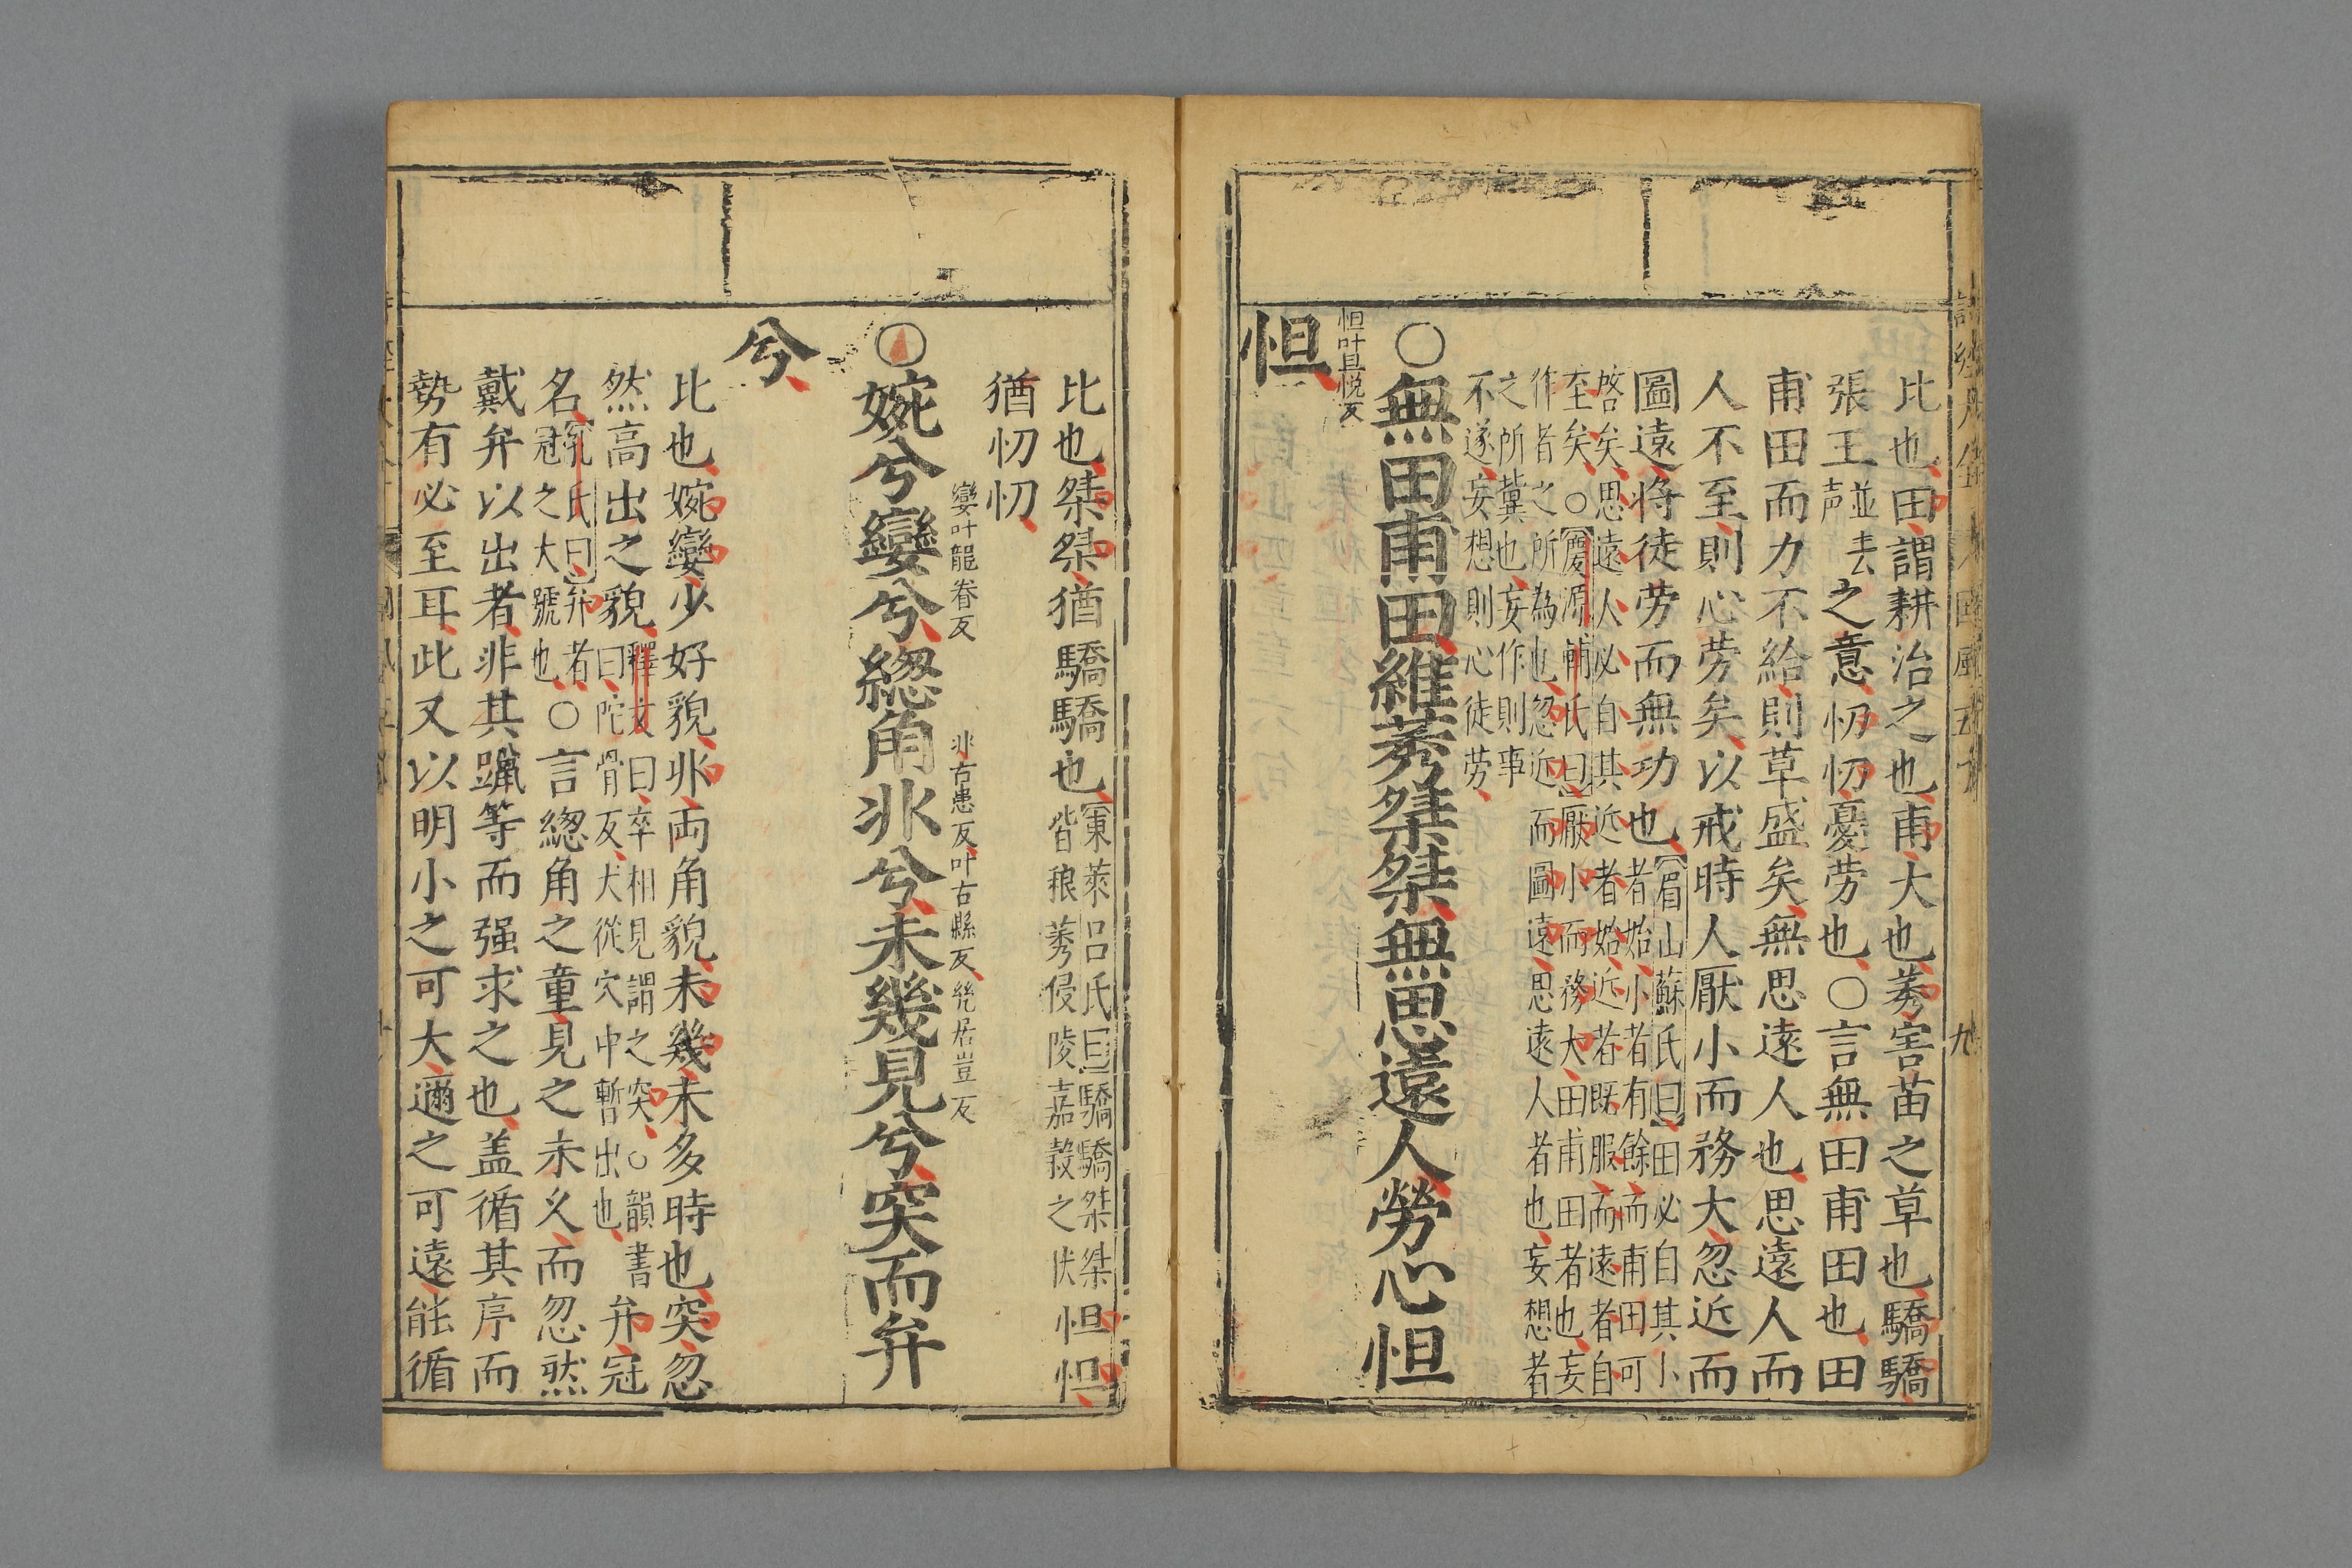 比也田謂耕治之也甫大也莠害苗之草也驕驕
張王並去
声之意忉忉憂劳也○言無田甫田也田
甫田而力不給則草盛矣無思遠人也思遠人而
人不至則心劳矣以戒時人厭小而務大忽近而
圖遠将徒劳而無功也眉山蘇氏曰田必自其小
者始小者有餘而甫田可
啓矣思遠人必自其近者始近者既服而遠者自
至矣○慶源輔氏曰厭小而務大田甫田者也妄
作者之所為也忽近而圖遠思遠人者也妄想者
之所冀也妄作則事
不遂妄想則心徒劳
○無田甫田維莠桀桀無思遠人勞心怛
怛叶旦悅反
怛
九
比也桀桀猶驕驕也東萊呂氏曰驕驕桀桀
皆稂莠侵陵嘉穀之狀怛怛
猶忉忉
孌叶龍眷反
丱古患反叶古縣反
幾居豈反
○婉兮孌兮緫角丱兮未幾見兮突而弁
兮
比也婉孌少好貌丱両角貌未幾未多時也突忽
然高出之貌釋文曰卒相見謂之突○韻書
曰陀骨反犬從穴中暫出也弁冠
名孔氏曰弁者
冠之大號也○言緫角之童見之未久而忽然
戴弁以出者非其躐等而强求之也盖循其序而
勢有必至耳此又以明小之可大邇之可遠能循